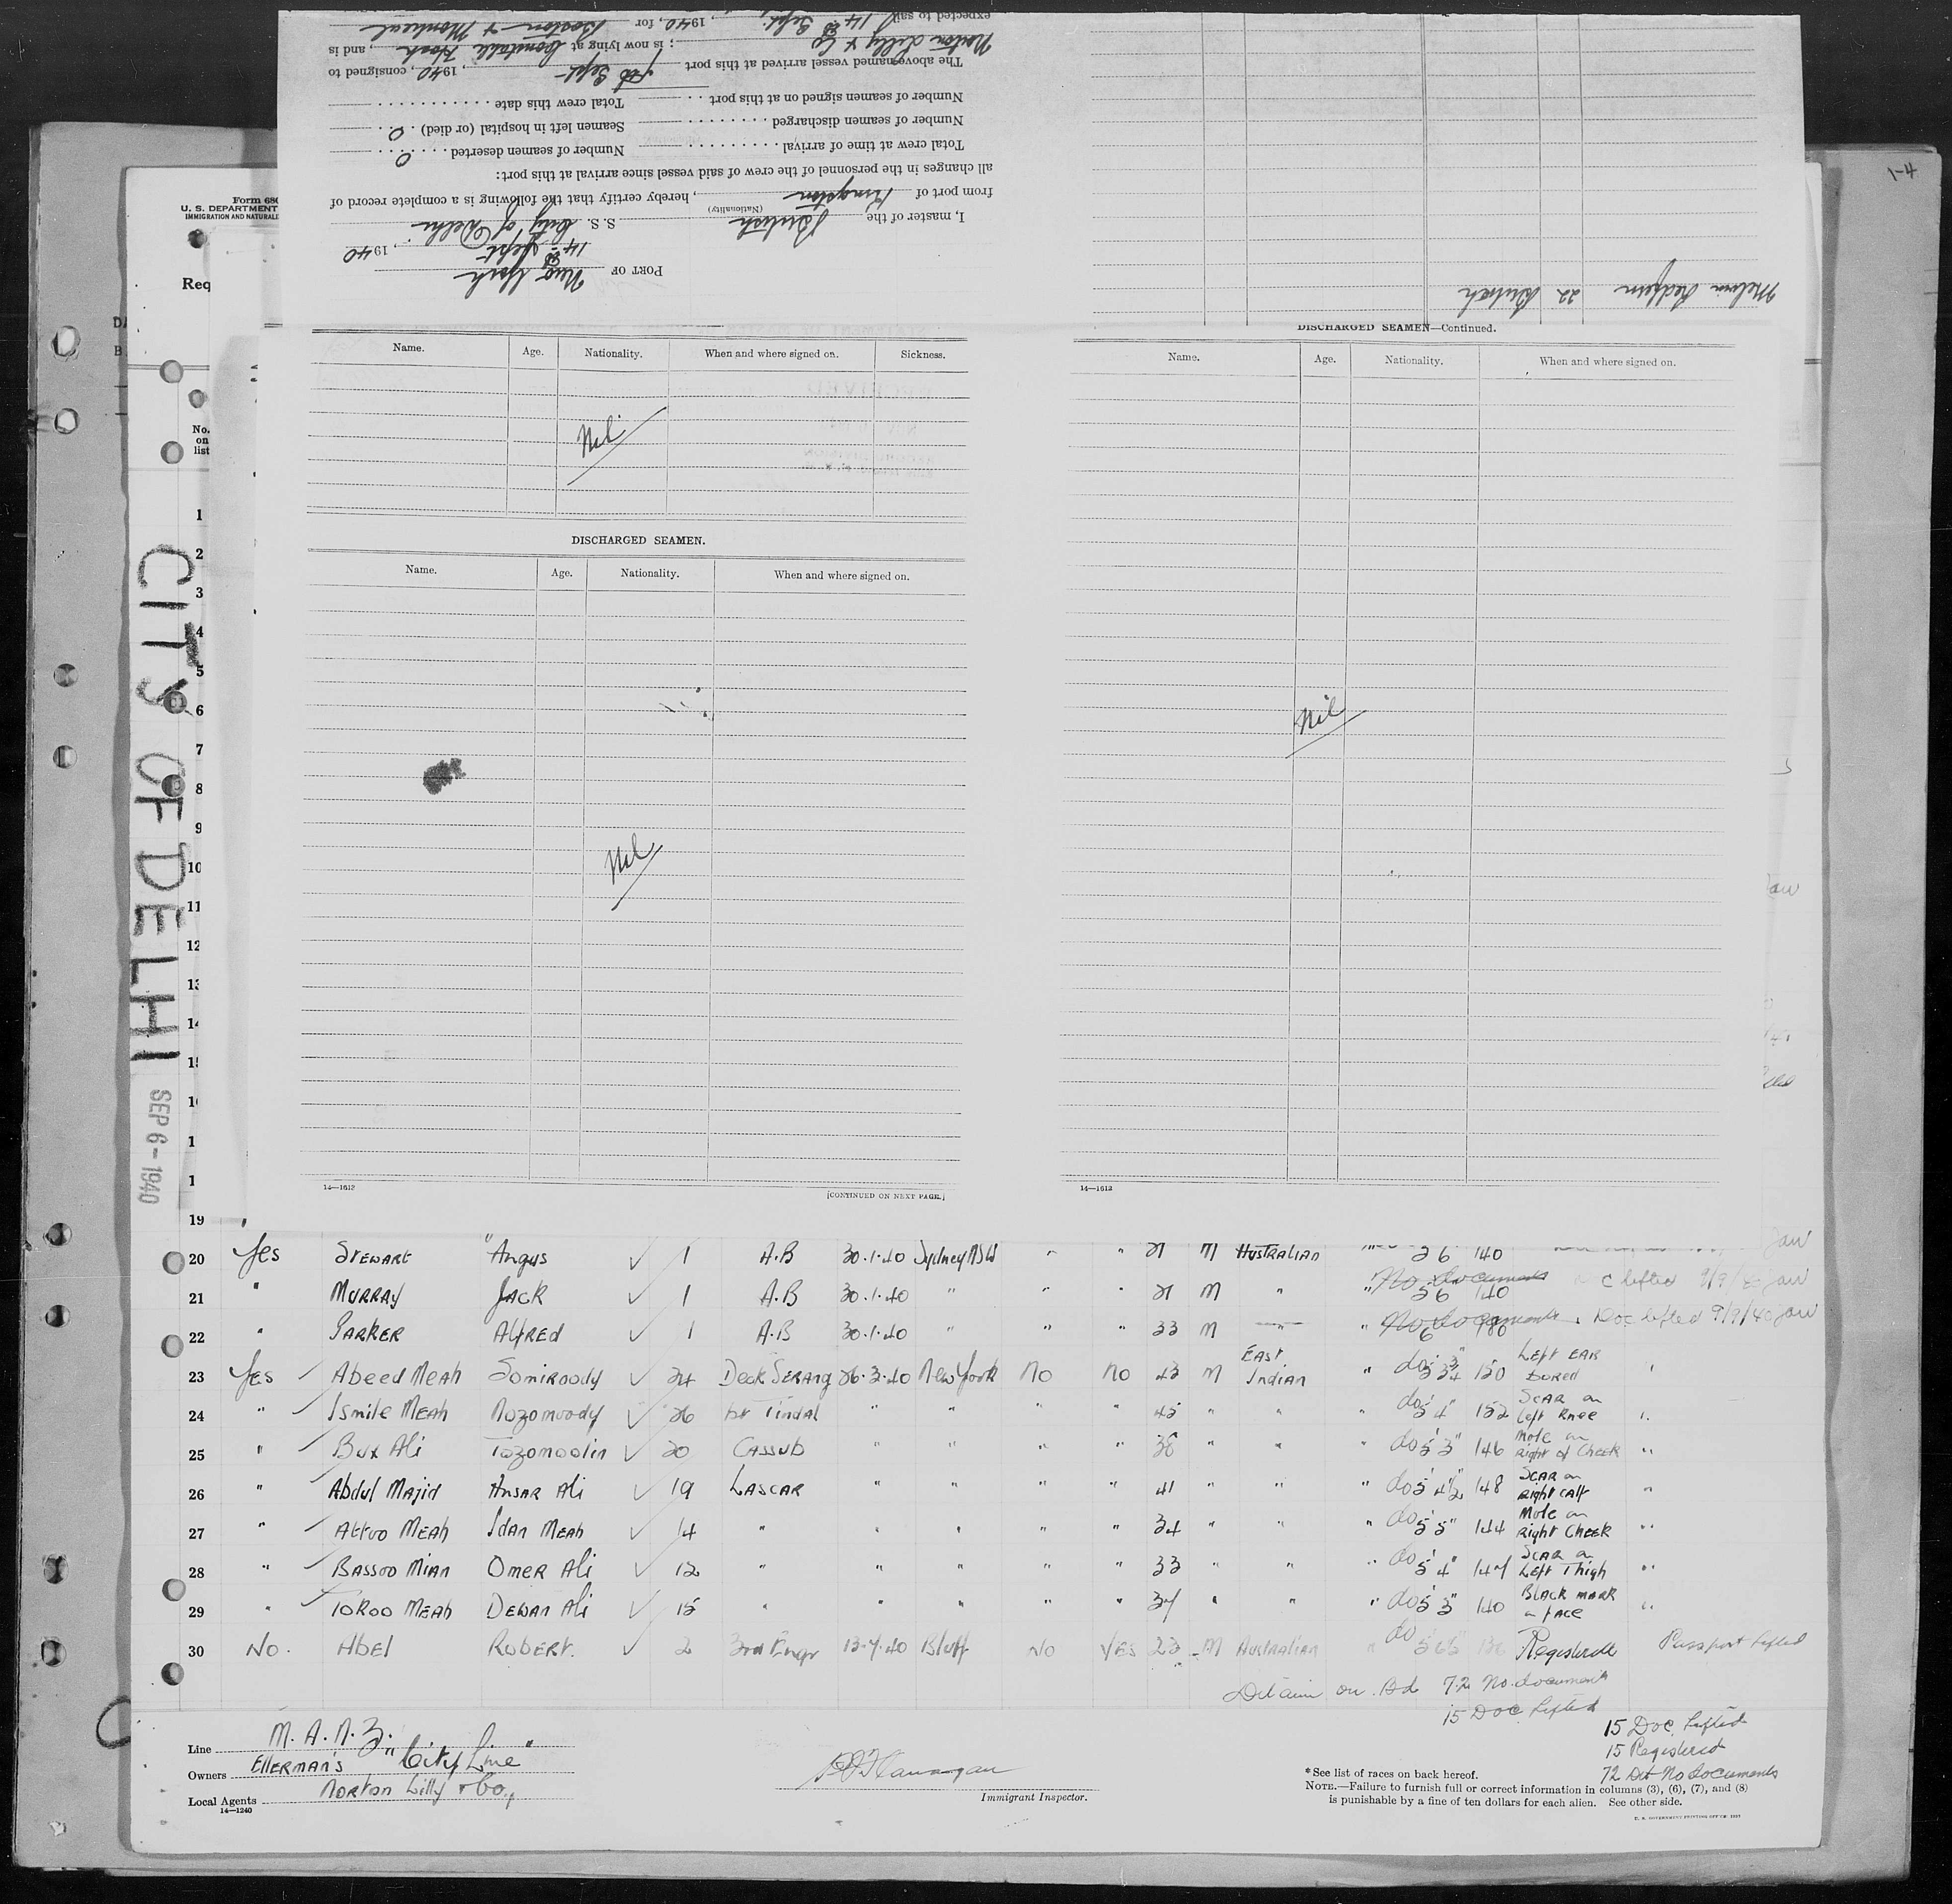 1-4
Melvin Redfern 22 British
PORT OF New York
14th Sept , 1940
I, master of the British S. S. City of Delhi
(Nationality)
from port of Kingston, hereby certify that the following is a complete record of
all changes in the personnel of the crew of said vessel since arrival at this port:
Total crew at time of arrival Number of seamen deserted 0
Number of seamen discharged Seamen left in hospital (or died) 0
Number of seamen signed on at this port Total crew this date
The above-named vessel arrived at this port Sept , 1940, consigned to
Norton Lilly & Co ; is now lying at Constable Hook, and is
expected to sail 14th Sept, 1940, for Boston & Montreal
Form 680
U. S. DEPARTMENT
IMMIGRATION AND NATURALI
Req
No. on list
CITY OF DELHI
SEP 6 - 1940
Name. Age. Nationality. When and where signed on. Sickness.
Nil
DISCHARGED SEAMEN.
Name. Age. Nationality. When and where signed on.
Nil
14—1612
[CONTINUED ON NEXT PAGE.]
DISCHARGED SEAMEN—Continued.
Name. Age. Nationality. When and where signed on.
Nil
14—1612
1
2
3
4
5
6
7
8
9
10
11
12
13
14
19
20 Yes STEWART Angus ✓ 1 A.B 30.1.40 Sydney NSW " " 21 M AUSTRALIAN " 5 6 140
21 " MURRAY JACK ✓ 1 A.B 30.1.40 " " " 21 M " " No documents 5 6 140 lifted 9/9/40 JAW
22 " PARKER AlfRED ✓ 1 A.B 30.1.40 " " " 33 M " " No documents 6 180 Doc lifted 9/9/40 JAW
23 Yes Abeed Meah Somiroody ✓ 24 Deck SERANG 26.3.40 New York No No 43 M EAST Indian " do 5' 3 3/4" 150 Left EAR BORED "
24 " Ismile MEAH Nozomoody ✓ 26 Tindal " " " " 45 " " " do 5' 4" 152 SCAR on Left Knee "
25 " Bux Ali Tozomoolin ✓ 20 CASSUB " " " " 38 " " " do 5' 3" 146 Mole on Right of Cheek "
26 " Abdul Majid Ansar Ali ✓ 19 LASCAR " " " " 41 " " " do 5' 4½" 148 SCAR on Right CALf "
27 " Attuo MEAH Idan MEAH ✓ 14 " " " " " 34 " " " do 5' 5" 144 Mole on Right Cheek "
28 " BASSOO MIAN OMER Ali ✓ 12 " " " " " 33 " " " do 5' 4" 147 SCAR on Left Thigh "
29 " TOROO MEAH DEWAN Ali ✓ 15 " " " " " 37 " " " do 5' 3" 140 BLACK MARK on fACE "
30 No. Abel ROBERT. ✓ 2 3rd Engr 13.7.40 Bluff No YES 23 M AUSTRALIAN " do Registered Passport lifted
Detain on Bd 72 No documents
15 Doc. Lifted
15 Doc. Lifted
15 Registered
72 Det No Documents
Line M. A. N. Z.
Owners EllERMAN's "City Line"
Local Agents NORTON Lilly & Co,
14—1240
Immigrant Inspector.
*See list of races on back hereof.
NOTE.—Failure to furnish full or correct information in columns (3), (6), (7), and (8)
is punishable by a fine of ten dollars for each alien. See other side.
U. S. GOVERNMENT PRINTING OFFICE: 1937